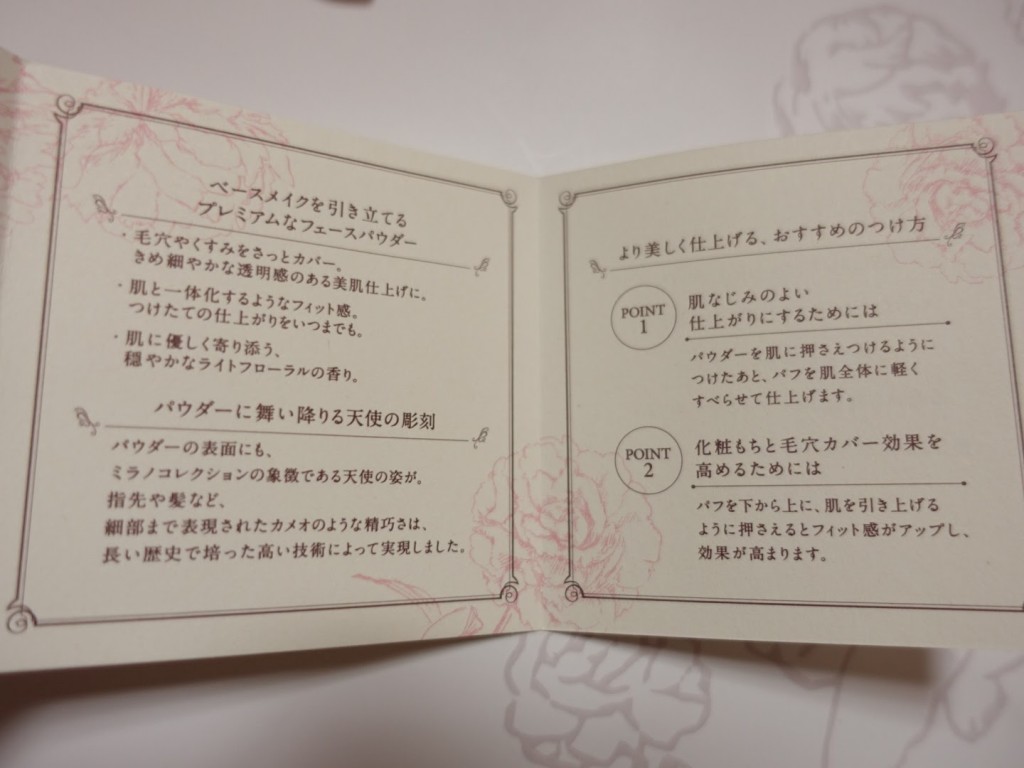 ベースメイクを引き立てる
プレミアムなフェースパウダー
・毛穴やくすみをさっとカバー。
きめ細やかな透明感のある美肌仕上げに。
・肌と一体化するようなフィット感。
つけたての仕上がりをいつまでも。
・肌に優しく寄り添う、
穏やかなライトフローラルの香り。
パウダーに舞い降りる天使の彫刻
パウダーの表面にも、
ミラノコレクションの象徴である天使の姿が。
指先や髪など、
細部まで表現されたカメオのような精巧さは、
長い歴史で培った高い技術によって実現しました。
より美しく仕上げる、おすすめのつけ方
POINT
1
肌なじみのよい
仕上がりにするためには
パウダーを肌に押さえつけるように
つけたあと、パフを肌全体に軽く
すべらせて仕上げます。
POINT
2
化粧もちと毛穴カバー効果を
高めるためには
パフを下から上に、肌を引き上げる
ように押さえるとフィット感がアップし、
効果が高まります。